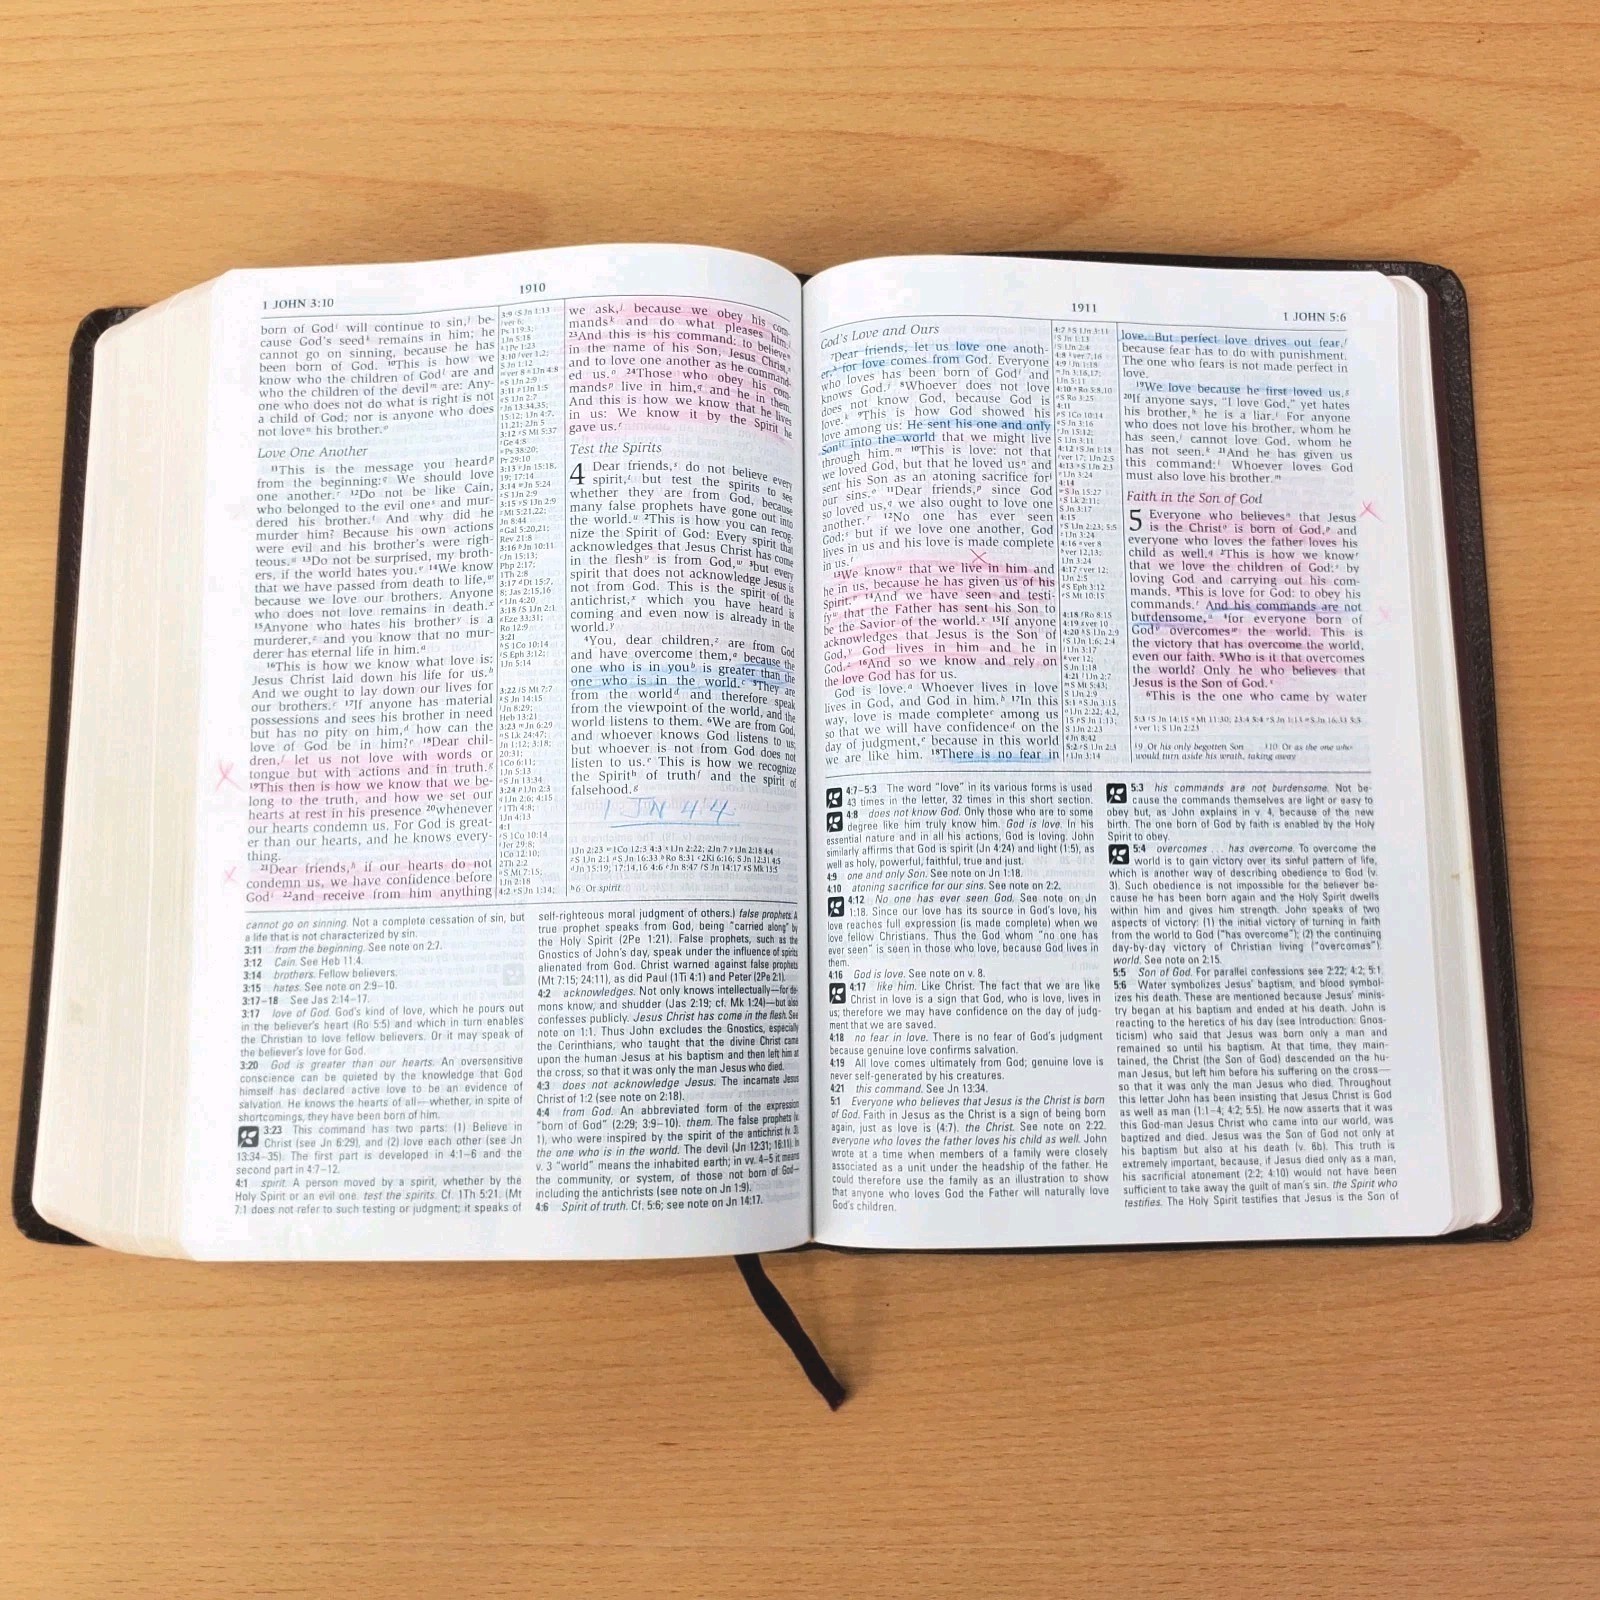 1 JOHN 3:10
1910
born of God will continue to sin, be-
cause God's seed remains in him; he
cannot go on sinning, because he has
been born of God. 10This is how we
know who the children of God are and
who the children of the devil are: Any-
one who does not do what is right is not
a child of God; nor is anyone who does
not love his brother.
Love One Another
11This is the message you heard
from the beginning: We should love
one another. 12Do not be like Cain,
who belonged to the evil one and mur-
dered his brother. And why did he
murder him? Because his own actions
were evil and his brother's were righ-
teous. 13Do not be surprised, my broth-
ers, if the world hates you. 14We know
that we have passed from death to life,
because we love our brothers. Anyone
who does not love remains in death.
15Anyone who hates his brother is a
murderer, and you know that no mur-
derer has eternal life in him.
16This is how we know what love is:
Jesus Christ laid down his life for us.
And we ought to lay down our lives for
our brothers. 17If anyone has material
possessions and sees his brother in need
but has no pity on him, how can the
love of God be in him? 18Dear chil-
dren, let us not love with words or
tongue but with actions and in truth.
19This then is how we know that we be-
long to the truth, and how we set our
hearts at rest in his presence 20whenever
our hearts condemn us. For God is great-
er than our hearts, and he knows every-
thing.
21Dear friends, if our hearts do not
condemn us, we have confidence before
God 22and receive from him anything
we ask, because we obey his com-
mands and do what pleases him.
23And this is his command: to believe
in the name of his Son, Jesus Christ,
and to love one another as he command-
ed us. 24Those who obey his com-
mands live in him, and he in them.
And this is how we know that he lives
in us: We know it by the Spirit he
gave us.
Test the Spirits
4 Dear friends, do not believe every
spirit, but test the spirits to see
whether they are from God, because
many false prophets have gone out into
the world. 2This is how you can recog-
nize the Spirit of God: Every spirit that
acknowledges that Jesus Christ has come
in the flesh is from God, 3but every
spirit that does not acknowledge Jesus is
not from God. This is the spirit of the
antichrist, which you have heard is
coming and even now is already in the
world.
4You, dear children, are from God
and have overcome them, because the
one who is in you is greater than the
one who is in the world. 5They are
from the world and therefore speak
from the viewpoint of the world, and the
world listens to them. 6We are from God,
and whoever knows God listens to us;
but whoever is not from God does not
listen to us. This is how we recognize
the Spirit of truth and the spirit of
falsehood.
1 JN 4:4
6 Or spirit
cannot go on sinning. Not a complete cessation of sin, but
a life that is not characterized by sin.
3:11 from the beginning. See note on 2:7.
3:12 Cain. See Heb 11:4.
3:14 brothers. Fellow believers.
3:15 hates. See note on 2:9-10.
3:17-18 See Jas 2:14-17.
3:17 love of God. God's kind of love, which he pours out
in the believer's heart (Ro 5:5) and which in turn enables
the Christian to love fellow believers. Or it may speak of
the believer's love for God.
3:20 God is greater than our hearts. An oversensitive
conscience can be quieted by the knowledge that God
himself has declared active love to be an evidence of
salvation. He knows the hearts of all—whether, in spite of
shortcomings, they have been born of him.
3:23 This command has two parts: (1) Believe in
Christ (see Jn 6:29), and (2) love each other (see Jn
13:34-35). The first part is developed in 4:1-6 and the
second part in 4:7-12.
4:1 spirit. A person moved by a spirit, whether by the
Holy Spirit or an evil one. test the spirits. Cf. 1Th 5:21. (Mt
7:1 does not refer to such testing or judgment; it speaks of
self-righteous moral judgment of others.) false prophets. A
true prophet speaks from God, being "carried along" by
the Holy Spirit (2Pe 1:21). False prophets, such as the
Gnostics of John's day, speak under the influence of spirits
alienated from God. Christ warned against false prophets
(Mt 7:15; 24:11), as did Paul (1Ti 4:1) and Peter (2Pe 2:1).
4:2 acknowledges. Not only knows intellectually—for de-
mons know, and shudder (Jas 2:19; cf. Mk 1:24)—but also
confesses publicly. Jesus Christ has come in the flesh. See
note on 1:1. Thus John excludes the Gnostics, especially
the Cerinthians, who taught that the divine Christ came
upon the human Jesus at his baptism and then left him at
the cross, so that it was only the man Jesus who died.
4:3 does not acknowledge Jesus. The incarnate Jesus
Christ of 1:2 (see note on 2:18).
4:4 from God. An abbreviated form of the expression
"born of God" (2:29; 3:9-10). them. The false prophets (v.
1), who were inspired by the spirit of the antichrist (v. 3).
the one who is in the world. The devil (Jn 12:31; 16:11). In
v. 3 "world" means the inhabited earth; in vv. 4-5 it means
the community, or system, of those not born of God—
including the antichrists (see note on Jn 1:9).
4:6 Spirit of truth. Cf. 5:6; see note on Jn 14:17.
1911
1 JOHN 5:6
God's Love and Ours
7Dear friends, let us love one anoth-
er, for love comes from God. Everyone
who loves has been born of God and
knows God. 8Whoever does not love
does not know God, because God is
love. 9This is how God showed his
love among us: He sent his one and only
Son into the world that we might live
through him. 10This is love: not that
we loved God, but that he loved us and
sent his Son as an atoning sacrifice for
our sins. 11Dear friends, since God
so loved us, we also ought to love one
another. 12No one has ever seen
God; but if we love one another, God
lives in us and his love is made complete
in us.
13We know that we live in him and
he in us, because he has given us of his
Spirit. 14And we have seen and testi-
fy that the Father has sent his Son to
be the Savior of the world. 15If anyone
acknowledges that Jesus is the Son of
God, God lives in him and he in
God. 16And so we know and rely on
the love God has for us.
God is love. Whoever lives in love
lives in God, and God in him. 17In this
way, love is made complete among us
so that we will have confidence on the
day of judgment, because in this world
we are like him. 18There is no fear in
love. But perfect love drives out fear,
because fear has to do with punishment.
The one who fears is not made perfect in
love.
19We love because he first loved us.
20If anyone says, "I love God," yet hates
his brother, he is a liar. For anyone
who does not love his brother, whom he
has seen, cannot love God, whom he
has not seen. 21And he has given us
this command: Whoever loves God
must also love his brother.
Faith in the Son of God
5 Everyone who believes that Jesus
is the Christ is born of God, and
everyone who loves the father loves his
child as well. 2This is how we know
that we love the children of God: by
loving God and carrying out his com-
mands. 3This is love for God: to obey his
commands. And his commands are not
burdensome, 4for everyone born of
God overcomes the world. This is
the victory that has overcome the world,
even our faith. 5Who is it that overcomes
the world? Only he who believes that
Jesus is the Son of God.
6This is the one who came by water
9 Or his only begotten Son 10 Or as the one who
would turn aside his wrath, taking away
4:7-5:3 The word "love" in its various forms is used
43 times in the letter, 32 times in this short section.
4:8 does not know God. Only those who are to some
degree like him truly know him. God is love. In his
essential nature and in all his actions, God is loving. John
similarly affirms that God is spirit (Jn 4:24) and light (1:5), as
well as holy, powerful, faithful, true and just.
4:9 one and only Son. See note on Jn 1:18.
4:10 atoning sacrifice for our sins. See note on 2:2.
4:12 No one has ever seen God. See note on Jn
1:18. Since our love has its source in God's love, his
love reaches full expression (is made complete) when we
love fellow Christians. Thus the God whom "no one has
ever seen" is seen in those who love, because God lives in
them.
4:16 God is love. See note on v. 8.
4:17 like him. Like Christ. The fact that we are like
Christ in love is a sign that God, who is love, lives in
us; therefore we may have confidence on the day of judg-
ment that we are saved.
4:18 no fear in love. There is no fear of God's judgment
because genuine love confirms salvation.
4:19 All love comes ultimately from God; genuine love is
never self-generated by his creatures.
4:21 this command. See Jn 13:34.
5:1 Everyone who believes that Jesus is the Christ is born
of God. Faith in Jesus as the Christ is a sign of being born
again, just as love is (4:7). the Christ. See note on 2:22.
everyone who loves the father loves his child as well. John
wrote at a time when members of a family were closely
associated as a unit under the headship of the father. He
could therefore use the family as an illustration to show
that anyone who loves God the Father will naturally love
God's children.
5:3 his commands are not burdensome. Not be-
cause the commands themselves are light or easy to
obey but, as John explains in v. 4, because of the new
birth. The one born of God by faith is enabled by the Holy
Spirit to obey.
5:4 overcomes ... has overcome. To overcome the
world is to gain victory over its sinful pattern of life,
which is another way of describing obedience to God (v.
3). Such obedience is not impossible for the believer be-
cause he has been born again and the Holy Spirit dwells
within him and gives him strength. John speaks of two
aspects of victory: (1) the initial victory of turning in faith
from the world to God ("has overcome"); (2) the continuing
day-by-day victory of Christian living ("overcomes").
world. See note on 2:15.
5:5 Son of God. For parallel confessions see 2:22; 4:2; 5:1.
5:6 Water symbolizes Jesus' baptism, and blood symbol-
izes his death. These are mentioned because Jesus' minis-
try began at his baptism and ended at his death. John is
reacting to the heretics of his day (see Introduction: Gnos-
ticism) who said that Jesus was born only a man and
remained so until his baptism. At that time, they main-
tained, the Christ (the Son of God) descended on the hu-
man Jesus, but left him before his suffering on the cross—
so that it was only the man Jesus who died. Throughout
this letter John has been insisting that Jesus Christ is God
as well as man (1:1-4; 4:2; 5:5). He now asserts that it was
this God-man Jesus Christ who came into our world, was
baptized and died. Jesus was the Son of God not only at
his baptism but also at his death (v. 6b). This truth is
extremely important, because, if Jesus died only as a man,
his sacrificial atonement (2:2; 4:10) would not have been
sufficient to take away the guilt of man's sin. the Spirit who
testifies. The Holy Spirit testifies that Jesus is the Son of